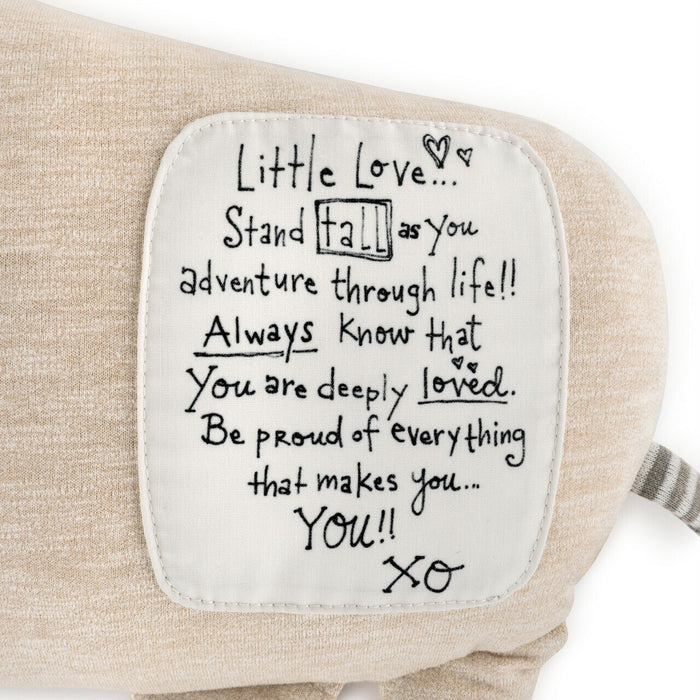 Little Love...
Stand tall as you
adventure through life!!
Always know that
You are deeply loved.
Be proud of everything
that makes you...
YOU!!
XO